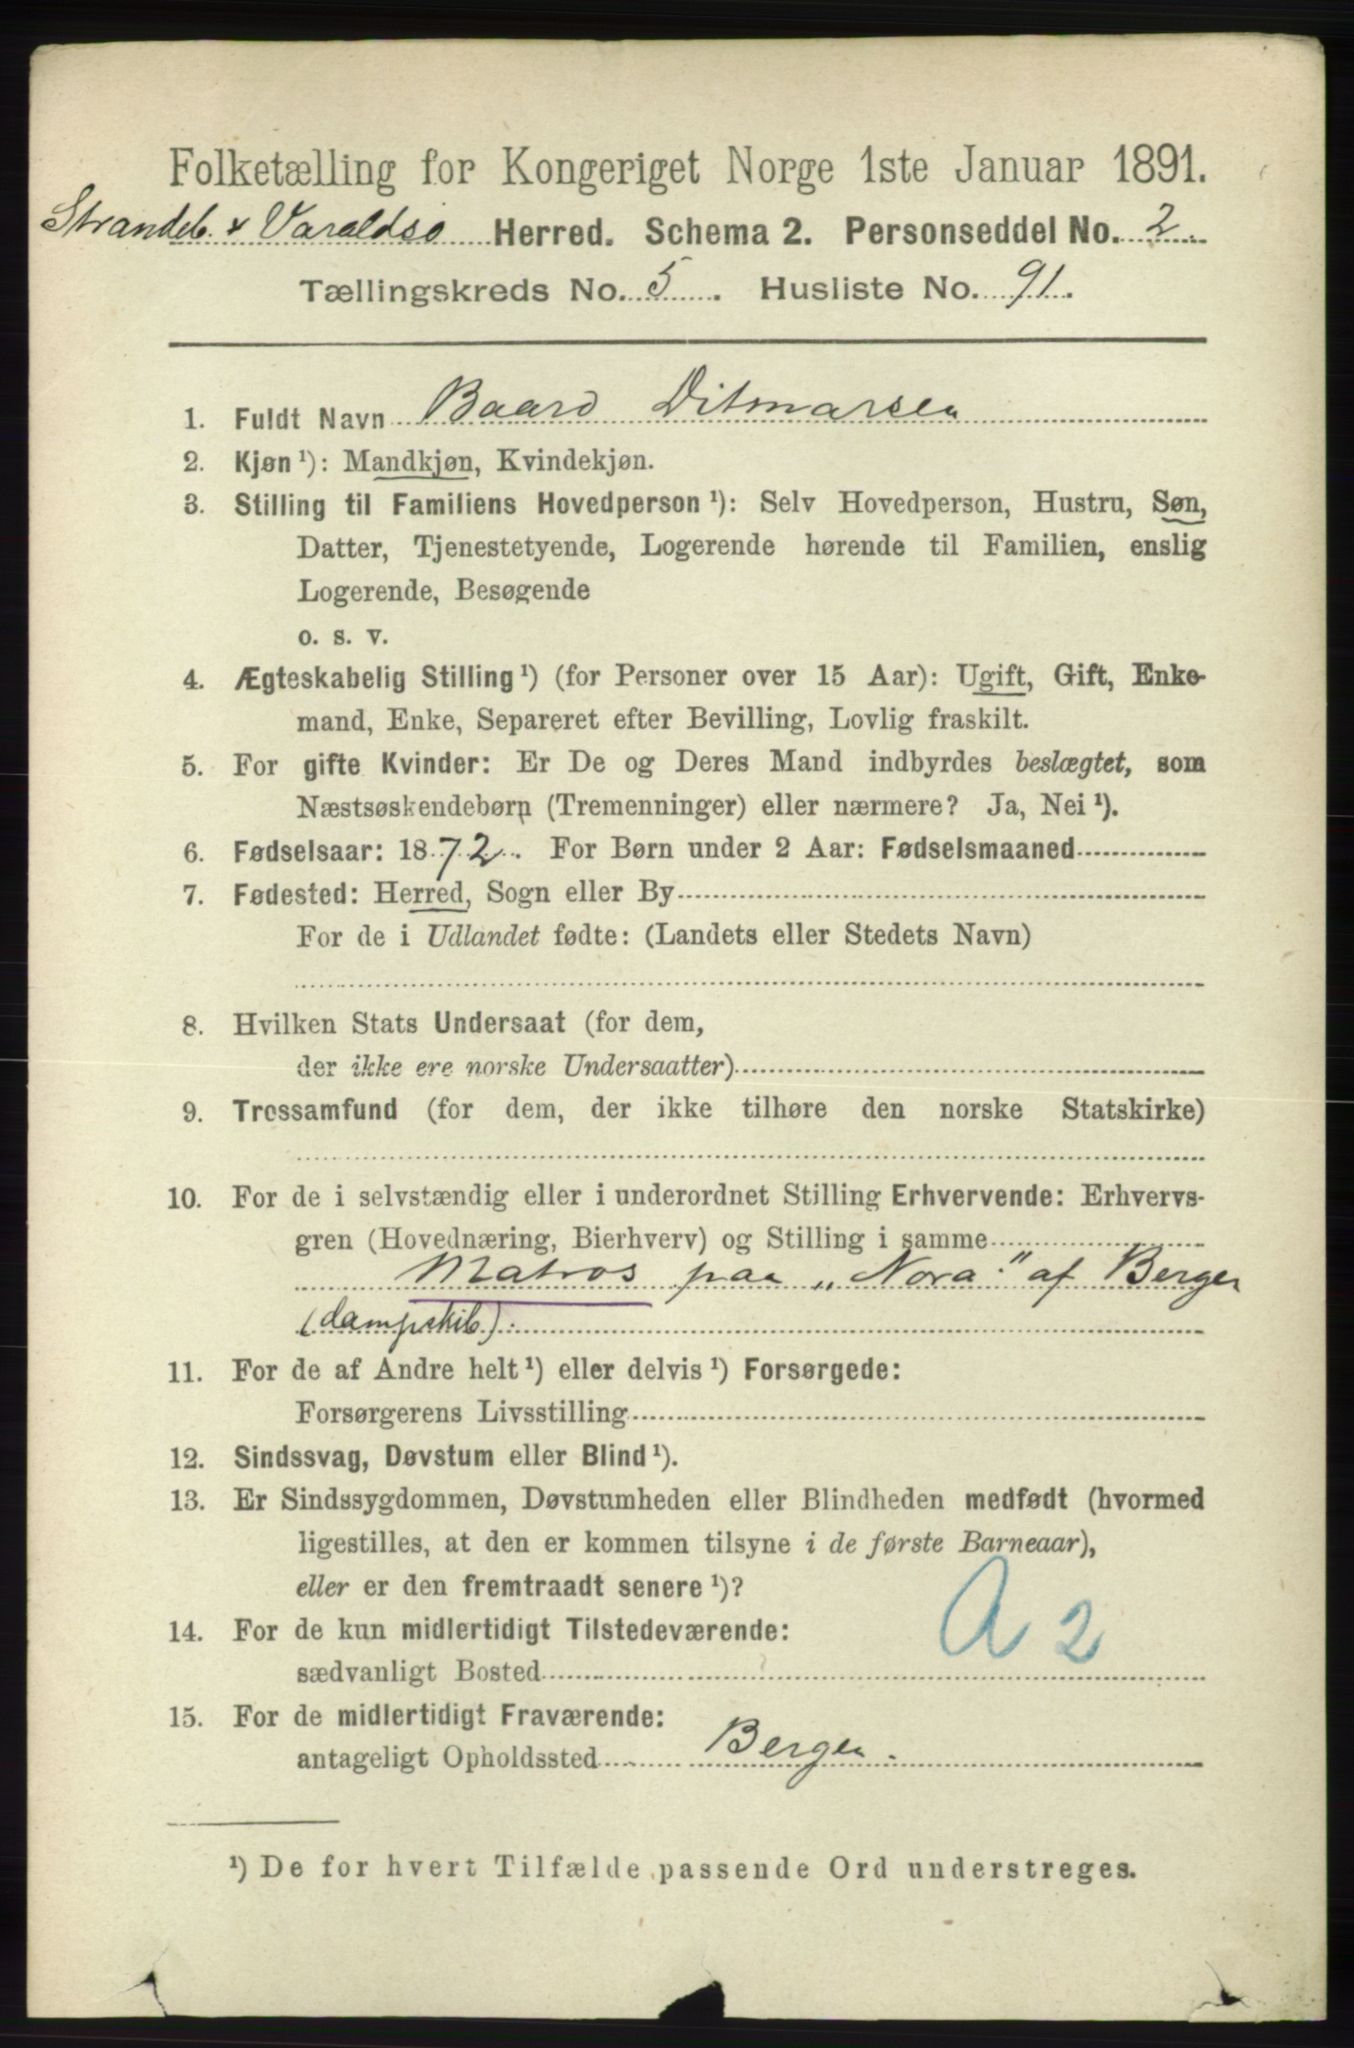 Folketælling for Kongeriget Norge 1ste Januar 1891.
Strandeb. & Varaldsø Herred. Schema 2. Personseddel No. 2.
Tællingskreds No. 5. Husliste No. 91.
1. Fuldt Navn Baard Ditmarsen
2. Kjøn ¹): Mandkjøn, Kvindekjøn.
3. Stilling til Familiens Hovedperson ¹): Selv Hovedperson, Hustru, Søn,
Datter, Tjenestetyende, Logerende hørende til Familien, enslig
Logerende, Besøgende
o. s. v.
4. Ægteskabelig Stilling ¹) (for Personer over 15 Aar): Ugift, Gift, Enke-
mand, Enke, Separeret efter Bevilling, Lovlig fraskilt.
5. For gifte Kvinder: Er De og Deres Mand indbyrdes beslægtet, som
Næstsøskendebørn (Tremenninger) eller nærmere? Ja, Nei ¹).
6. Fødselsaar: 1872. For Børn under 2 Aar: Fødselsmaaned
7. Fødested: Herred, Sogn eller By
For de i Udlandet fødte: (Landets eller Stedets Navn)
8. Hvilken Stats Undersaat (for dem,
der ikke ere norske Undersaatter)
9. Trossamfund (for dem, der ikke tilhøre den norske Statskirke)
10. For de i selvstændig eller i underordnet Stilling Erhvervende: Erhvervs-
gren (Hovednæring, Bierhverv) og Stilling i samme
Matros paa „Nora" af Bergen
(dampskib).
11. For de af Andre helt ¹) eller delvis ¹) Forsørgede:
Forsørgerens Livsstilling
12. Sindssvag, Døvstum eller Blind ¹).
13. Er Sindssygdommen, Døvstumheden eller Blindheden medfødt (hvormed
ligestilles, at den er kommen tilsyne i de første Barneaar),
eller er den fremtraadt senere ¹)?
A 2
14. For de kun midlertidigt Tilstedeværende:
sædvanligt Bosted
15. For de midlertidigt Fraværende:
antageligt Opholdssted Bergen.
¹) De for hvert Tilfælde passende Ord understreges.